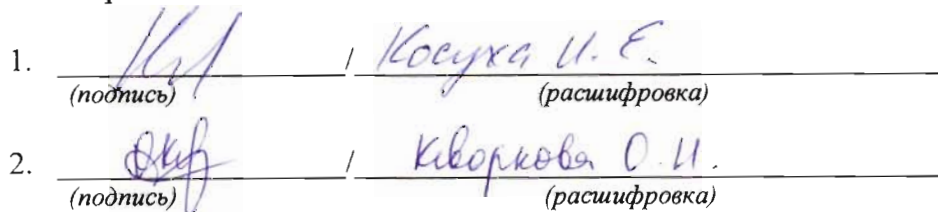 1. / Косуха И. Е.
(подпись) (расшифровка)
2. / Кворкова О. И.
(подпись) (расшифровка)